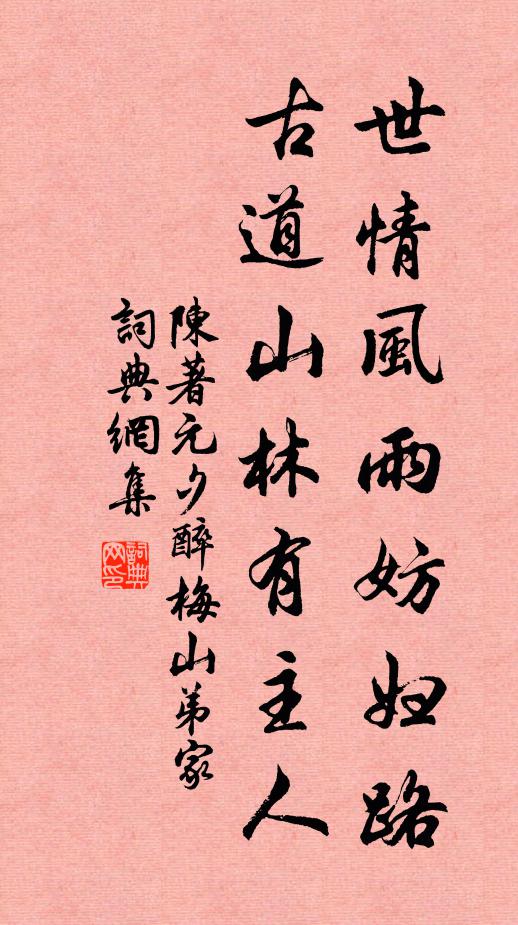 世情風雨妨妞路
古道山林有主人
陳著元夕醉梅山弟家
詞典網集
詞典網印